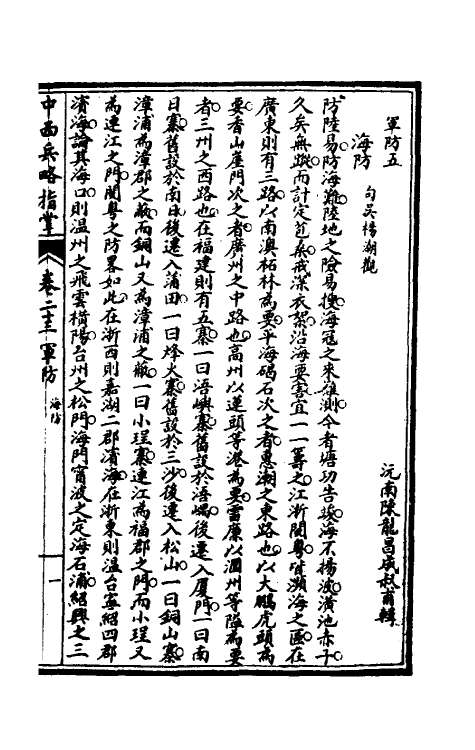 軍防五
沅南陳龍昌成叔甫輯
海防
句吳楊湖觀
防陸易防海難陸地之險易據海寇之來難測今者塘功告竣海不揚波潢池赤子
久矣無蹤而計定苞桑戒深衣袽沿海要害宜一一籌之江浙閩粵皆瀕海之區在
廣東則有三路以南澳柘林為要平海碣石次之者惠潮之東路也以大鵬虎頭為
要香山崖門次之者廣州之中路也高州以蓮頭等港為要雷廉以潿州等隘為要
者三州之西路也在福建則有五寨一曰浯嶼寨舊設於浯嶼後遷入厦門一曰南
日寨舊設於南日後遷入蒲田一曰烽火寨舊設於三沙後遷入松山一曰銅山寨
漳浦為漳郡之蔽而銅山又為漳浦之蔽一曰小埕寨連江為福郡之門而小埕又
為連江之門閩粵之防畧如此在浙西則嘉湖二郡濱海在浙東則溫台寧紹四郡
濱海論其海口則溫州之飛雲橫陽台州之松門海門甯波之定海石浦紹興之三
中西兵略指掌
卷二十三 軍防
海防
一